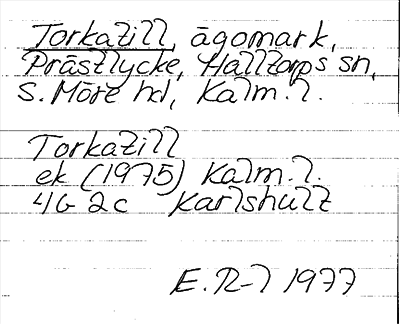 Torkatill, ägomark,
Prästlycke, Halltorps sn,
S. Möre hd, Kalm. l.
Torkatill
ek (1975) Kalm. l.
4G 2c Karlshult
E. R-l 1977